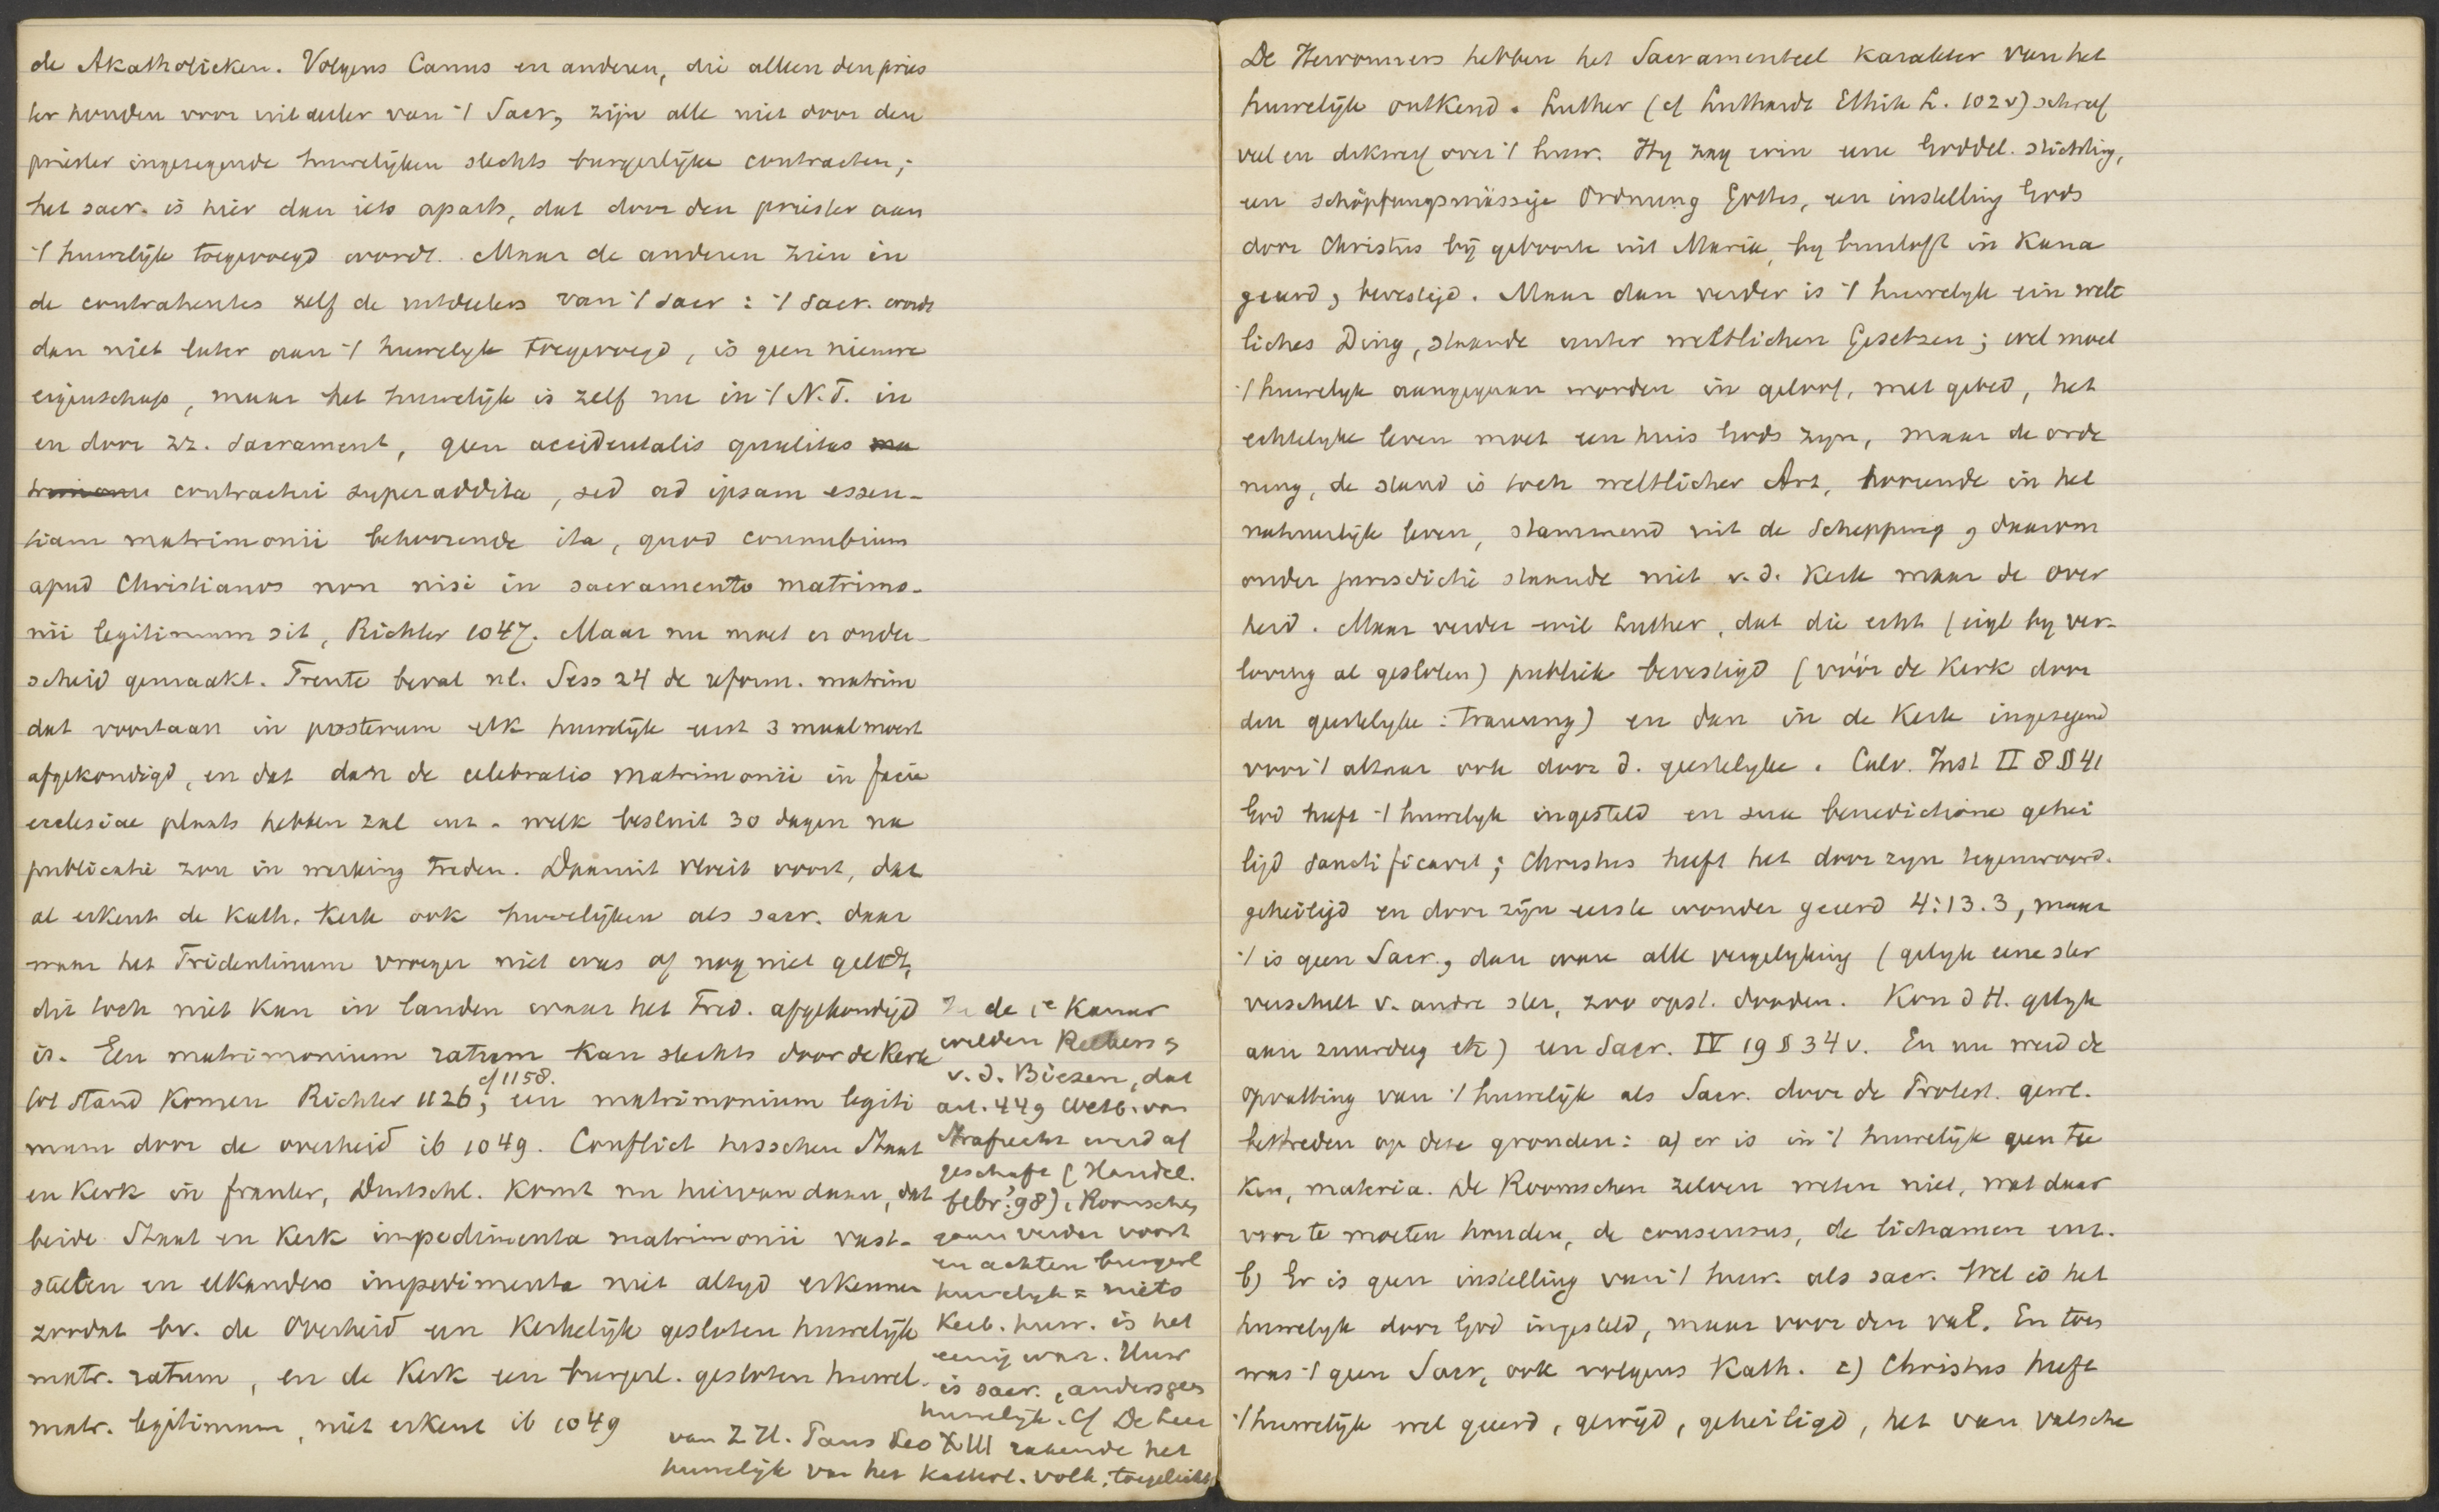 de Akatholieken. Volgens Canus en anderen, die alleen den pries
ter houden voor uitdeeler van 't Sacr, zijn alle niet door den
priester ingezegende huwelijken slechts burgerlijke contracten;
het sacr. is hier dan iets aparts, dat door den priester aan
't huwelijk toegevoegd wordt. Maar de anderen zien in
de contrahentes zelf de uitdeelers van 't sacr: 't sacr. wordt
dan niet later aan 't huwelijk toegevoegd, is geen nieuwe
eigenschap, maar het huwelijk is zelf nu in 't N.T. in
en door zz. Sacrament, geen accidentalis qualitas
contractui superaddita, sed ad ipsam essen-
tiam matrimonii behoorende ita, quod connubium
apud Christianos non nisi in sacramento matrimo-
nii legitimum sit, Richter 1047. Maar nu moet er onder-
scheid gemaakt. Trente beval nl. Sess 24 de reform. matrim
dat voortaan in posterum elk huwelijk eerst 3 maal moest
afgekondigd, en dat dan de celebratio matrimonii in facie
ecclesiae plaats hebben zal enz. welk besluit 30 dagen na
publicatie zou in werking treden. Daaruit vloeit voort, dat
al erkent de Kath. Kerk ook huwelijken als sacr. daar
waar het Tridentinum vroeger niet was of nog niet geldt,
dit toch niet kan in landen waar het Trid. afgekondigd
is. Een matrimonium ratum kan slechts door de Kerk
cf 1158.
tot stand komen Richter 1126; een matrimonium legiti
mum door de overheid ib 1049. Conflict tusschen Staat
en Kerk in frankr, Duitschl. komt nu hiervandaan, dat
beide Staat en Kerk impedimenta matrimonii vast-
stellen en elkanders impedimenta niet altyd erkennen
zoodat bv. de Overheid een Kerkelijk gesloten huwelijk
matr. ratum, en de Kerk een burgerl. gesloten huwel.
matr. legitimum, niet erkent ib 1049
In de 1e Kamer
wilden Regbers &
v. d. Biesen, dat
art. 449 Wetb. van
Strafrecht werd af
geschaft (Handel.
febr. '98). Roomschen
gaan verder voort
en achten burgerl
huwelijk = niets
Kerk. huw. is het
eenig ware. Huw
is sacr. anders geen
huwelijk. Cf De Leer
van Z.H. Paus Leo XIII rakende het
huwelijk van het Kathol. volk, toegelicht
De Hervormers hebben het Sacramenteel karakter van het
huwelijk ontkend. Luther (cf Luthardt Ethik L. 102v) schreef
veel en dikwerf over 't huw. Hy zag erin eene Goddel. stichting,
een schöpfungsmässige Ordnung Gottes, een instelling Gods
door Christus bij geboorte uit Maria, by bruiloft in Kana
geeerd, bevestigd. Maar dan verder is 't huwelyk ein welt
liches Ding, staande unter weltlichen Gesetzen; wel moet
't huwelyk aangegaan worden in geloof, met gebed, het
echtelyke leven moet een huis Gods zyn, maar de orde
ning, de stand is toch weltlicher Art, hoorende in het
natuurlijk leven, stammend uit de Schepping, daarom
onder jurisdictie staande niet v. d. Kerk maar de over
heid. Maar verder wil Luther, dat die echt (eigl by ver-
loving al gesloten) publiek bevestigd (vóór de Kerk door
den geestelyke: trauung) en dan in de Kerk ingezegend
voor 't altaar ook door d. geestelyke. Calv. Inst II 8 § 41
God heeft 't huwelyk ingesteld en sua benedictione gehei
ligd sanctificavit; Christus heeft het door zyn tegenwoord.
geheiligd en door zijn eerste wonder geeerd 4:13.3, maar
't is geen Sacr., dan ware alle vergelyking (gelyk eene ster
verschilt v. andre ster, zoo opst. dooden. Kon d H. gelyk
aan zuurdeeg etc) een Sacr. IV 19 § 34 v. En nu werd de
opvatting van 't huwelijk als Sacr. door de Protest. gewl.
bestreden op deze gronden: a) er is in 't huwelijk geen tee
ken, materia. De Roomschen zelven weten niet, wat daar
voor te moeten houden, de consensus, de lichamen enz.
b) Er is geen instelling van 't huw. als sacr. Wel is het
huwelyk door God ingesteld, maar voor den val. En toen
was 't geen Sacr, ook volgens Kath. c) Christus heeft
't huwelijk wel geeerd, gewijd, geheiligd, het van valsche